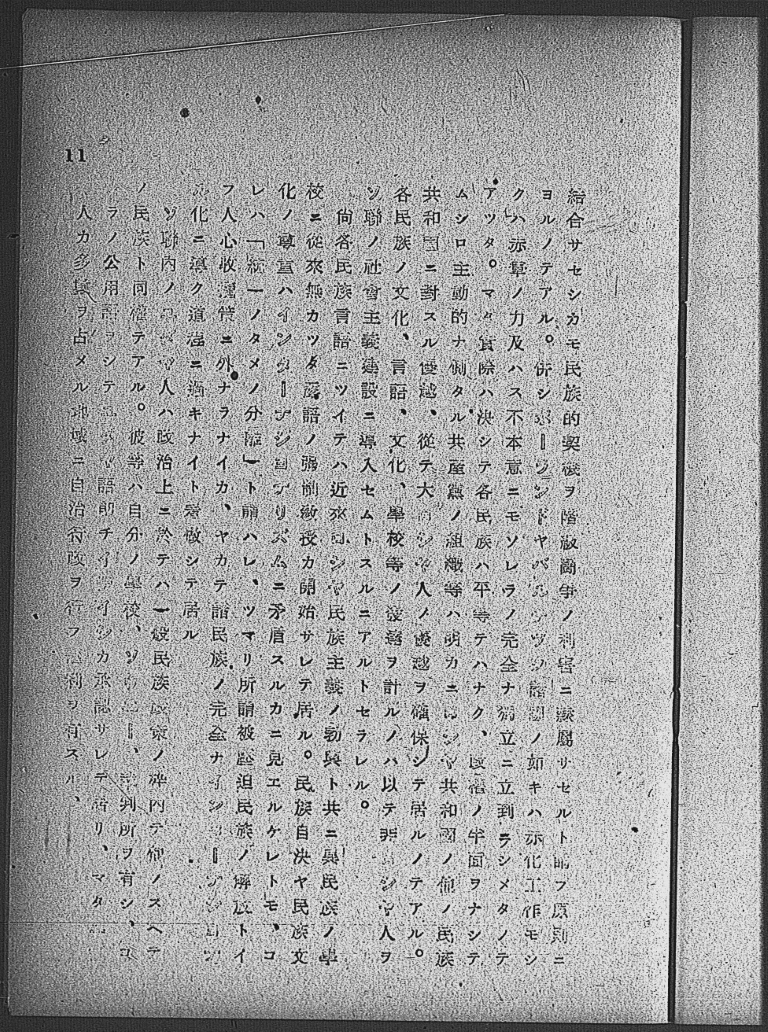 結合サセシカモ民族的契機ヲ階級鬪爭ノ利害ニ隷屬サセルト謂フ原則ニ
ヨルノテアル。併シポーランドヤバルチツク諸國ノ如キハ赤化工作モシ
クハ赤軍ノ力及ハス不本意ニモソレラノ完全ナ獨立ニ立到ラシメタノテ
アツタ。マタ實際ハ決シテ各民族ハ平等テハナク、ノ半面ヲナシテ
ムシロ主動的ナ側タル共産黨ノ組織等ハ明カニロシヤ共和國ノ他ノ民族
共和國ニ對スル優越、從テ大ロシヤ人ノ優越ヲ確保シテ居ルノテアル。
各民族ノ文化、言語、文化、學校等ノ發達ヲ計ルノハ以テ非ロシヤ人ヲ
ソ聯ノ社會主義建設ニ導入セムトスルニアルトセラレル。
尙各民族言語ニツイテハ近來ロシヤ民族主義ノ勃興ト共ニ異民族ノ學
校ニ從來無カツタ露語ノ強制敎授カ開始サレテ居ル。民族自決ヤ民族文
化ノ尊重ハインターナシヨナリズムニ矛盾スルカニ見エルケレトモ、コ
レハ「統一ノタメノ分離」ト謂ハレ、ツマリ所謂被壓迫民族ノ解放トイ
フ人心收攬策ニ外ナラナイカ、ヤカテ諸民族ノ完全ナインターナシヨナ
ル化ニ導ク道程ニ過キナイト看做シテ居ル
ソ聯內ノ人ハ政治上ニ於テハ一般民族政策ノ枠內テ他ノスヘテ
ノ民族ト同樣テアル。彼等ハ自分ノ學校、裁判所ヲ有シ、
ラノ公用語トシテ語即チカ承認サレテ居リ、マタ
人カ多數ヲ占メル地域ニ自治行政ヲ行フ權利ヲ有スル、
11